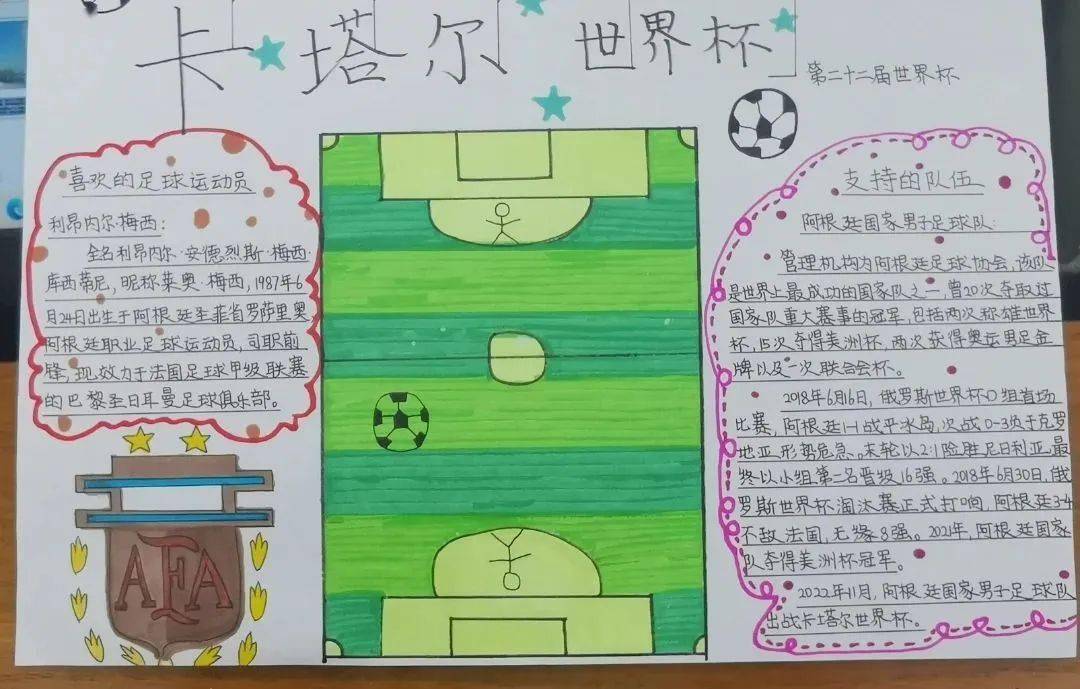 卡塔尔世界杯
第二十二届世界杯
喜欢的足球运动员
利昂内尔·梅西:
全名利昂内尔·安德烈斯·梅西·
库西蒂尼,昵称莱奥·梅西,1987年6
月24日出生于阿根廷圣菲省罗萨里奥
阿根廷职业足球运动员,司职前
锋,现效力于法国足球甲级联赛
的巴黎圣日耳曼足球俱乐部。
AFA
支持的队伍
阿根廷国家男子足球队:
管理机构为阿根廷足球协会,该队
是世界上最成功的国家队之一,曾20次夺取过
国家队重大赛事的冠军,包括两次称雄世界
杯,15次夺得美洲杯,两次获得奥运男足金
牌以及一次联合会杯。
2018年6月16日,俄罗斯世界杯D组首场
比赛,阿根廷1-1战平冰岛,次战0-3负于克罗
地亚,形势危急。末轮以2:1险胜尼日利亚,最
终以小组第二名晋级16强。2018年6月30日,俄
罗斯世界杯淘汰赛正式打响,阿根廷3-4
不敌法国,无缘8强。2021年,阿根廷国家
队夺得美洲杯冠军。
2022年11月,阿根廷国家男子足球队
出战卡塔尔世界杯。